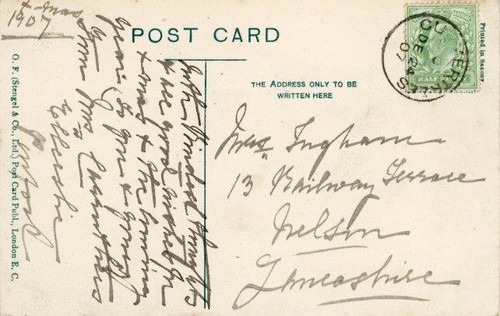 X mas
1907
POST CARD
THE ADDRESS ONLY TO BE
WRITTEN HERE
Printed in Saxony.
HALF
CU
DE 24
07
O. F. (Stengel & Co., Ltd.) Post Card Publ., London E. C.
With kindest thoughts
& good wishes for
Xmas & the coming
year, to you & yours
from Mrs
Mrs Ingham
13 Railway Terrace
Nelson
Lancashire